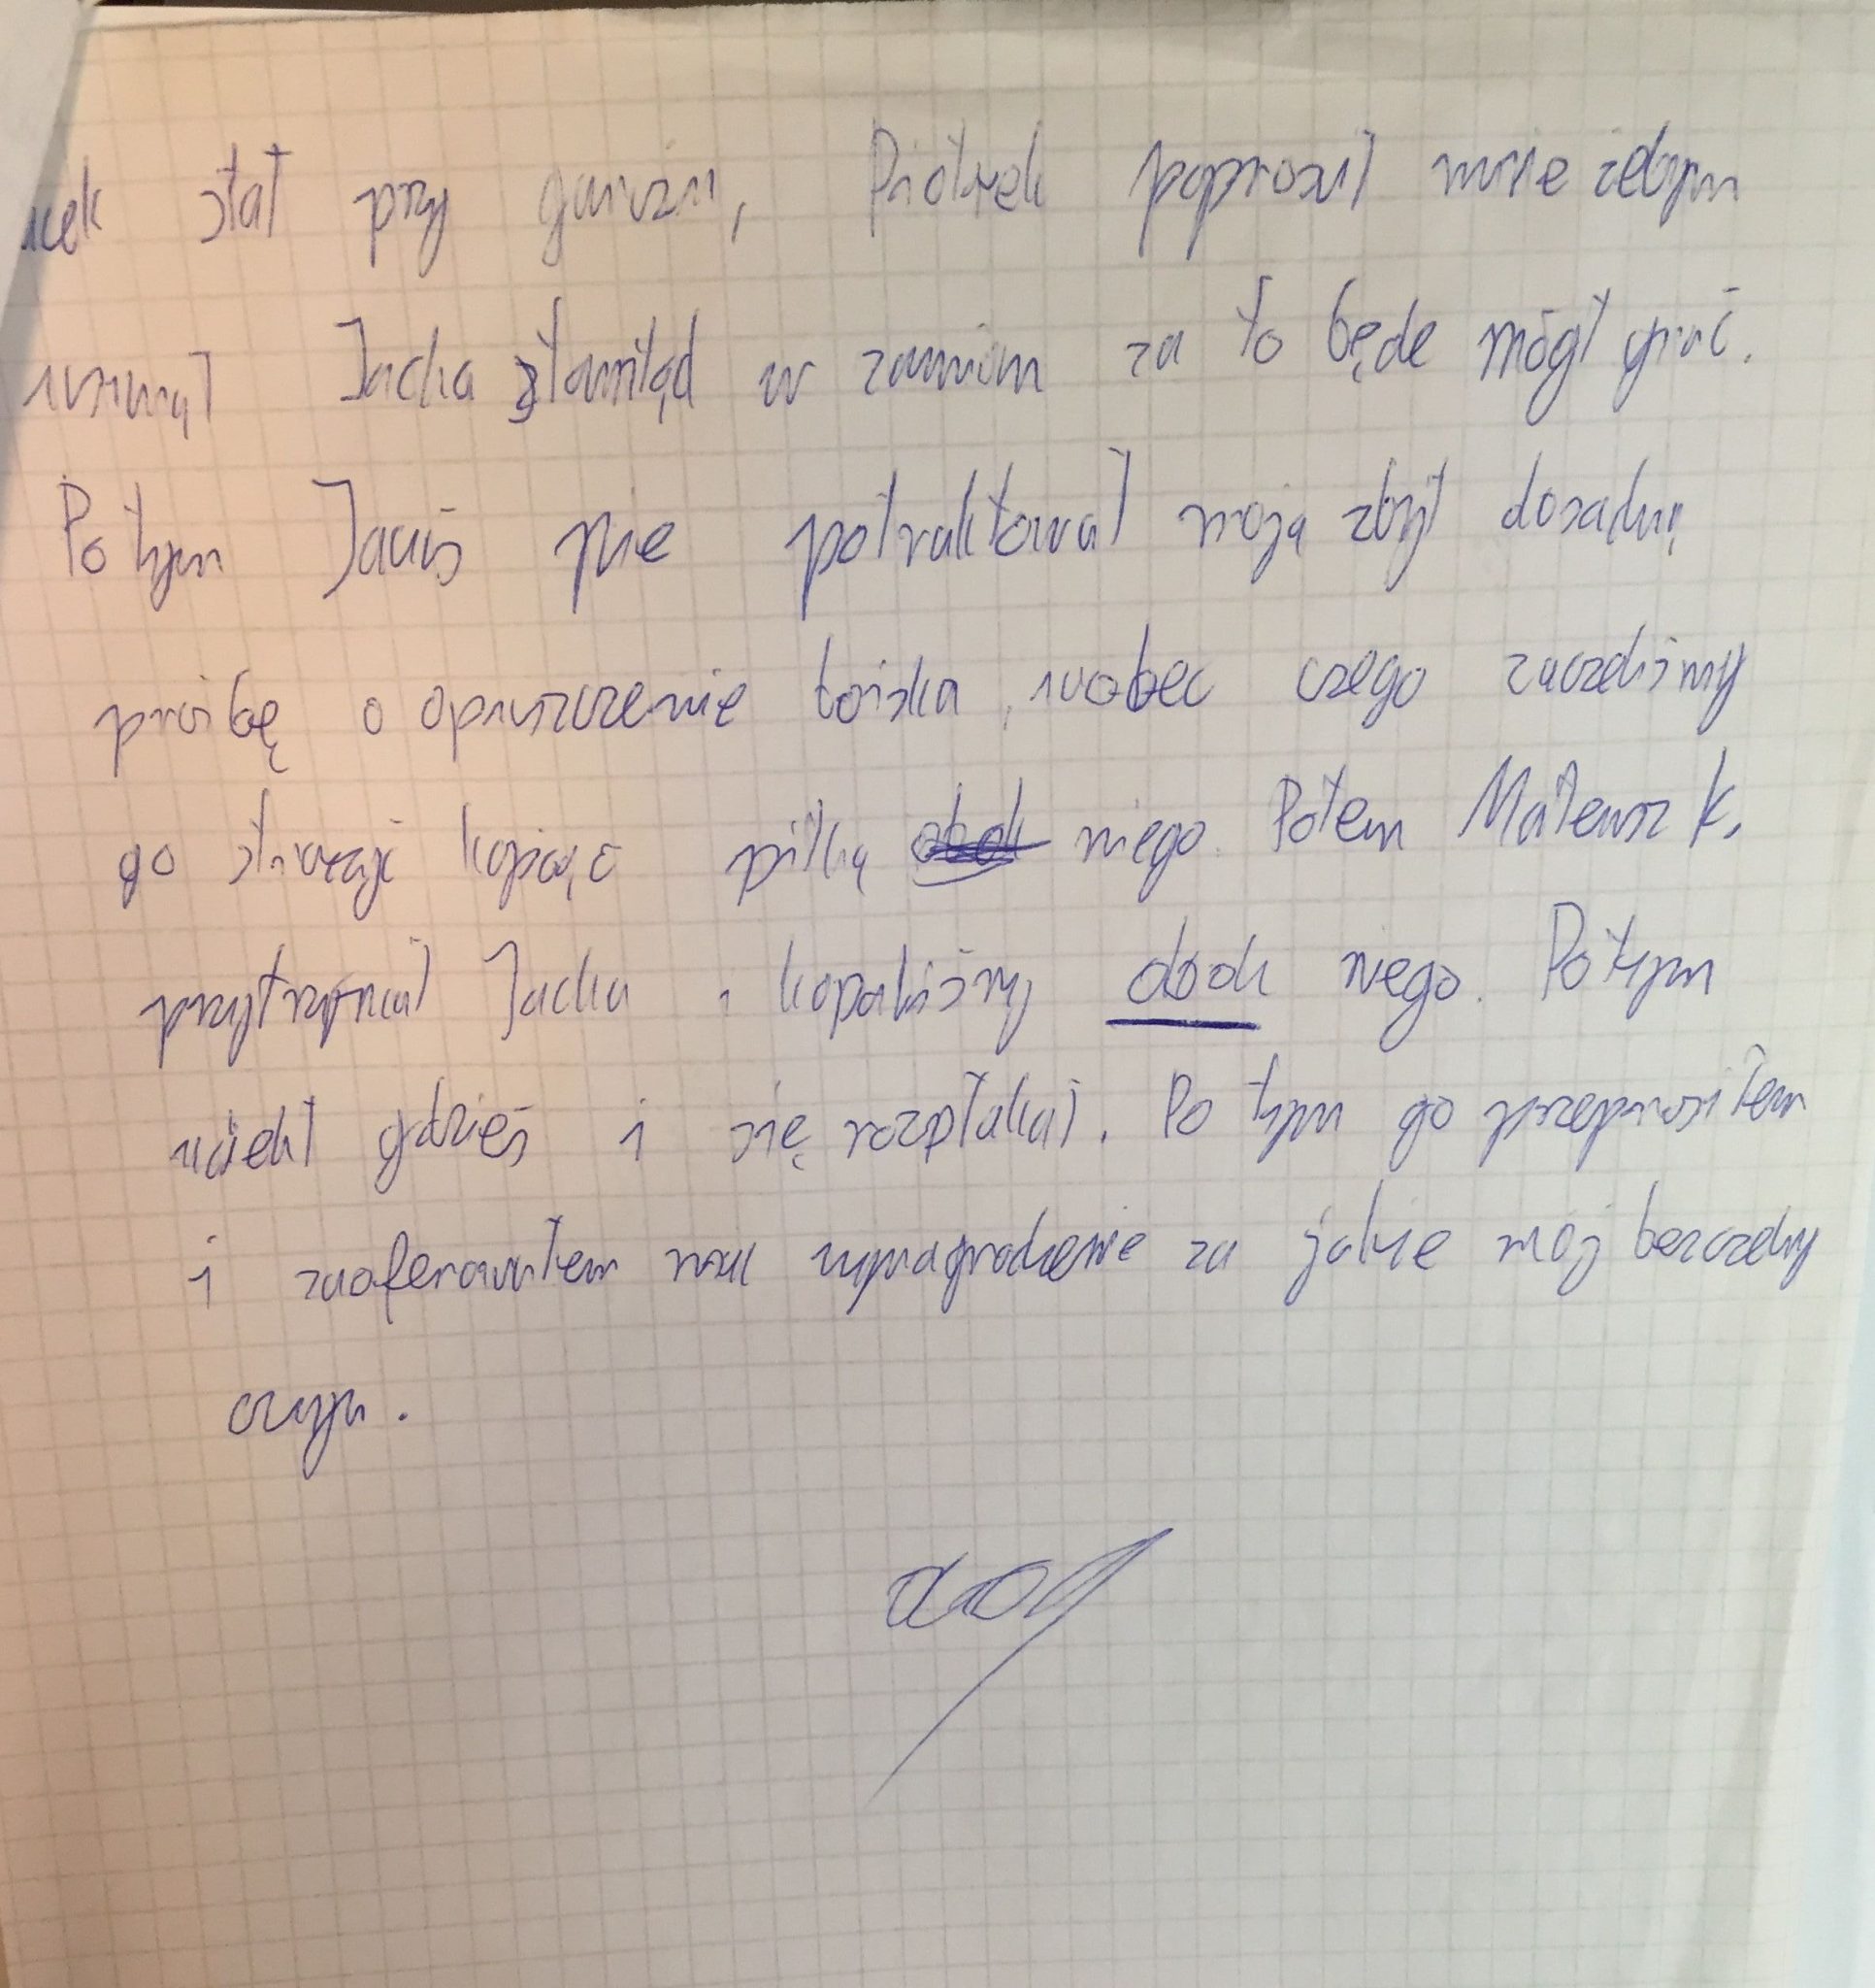 acek stał przy  Piotrek poprosił mnie żebym
usunął Jacka stamtąd w zamian za to będe mógł grać.
Po tym Jacuś nie potraktował moją zbyt dosadną
prośbę o opuszczenie boiska, wobec czego zaczeliśmy
go straszyć kopiąc piłką niego. Potem Mateusz K.
przytrzymał Jacka i kopaliśmy obok niego. Po tym
uciekł gdzieś i się rozpłakał. Po tym go przeprosiłem
i zaoferowałem mu wynagrodzenie za jakże mój bezczelny
czyn.